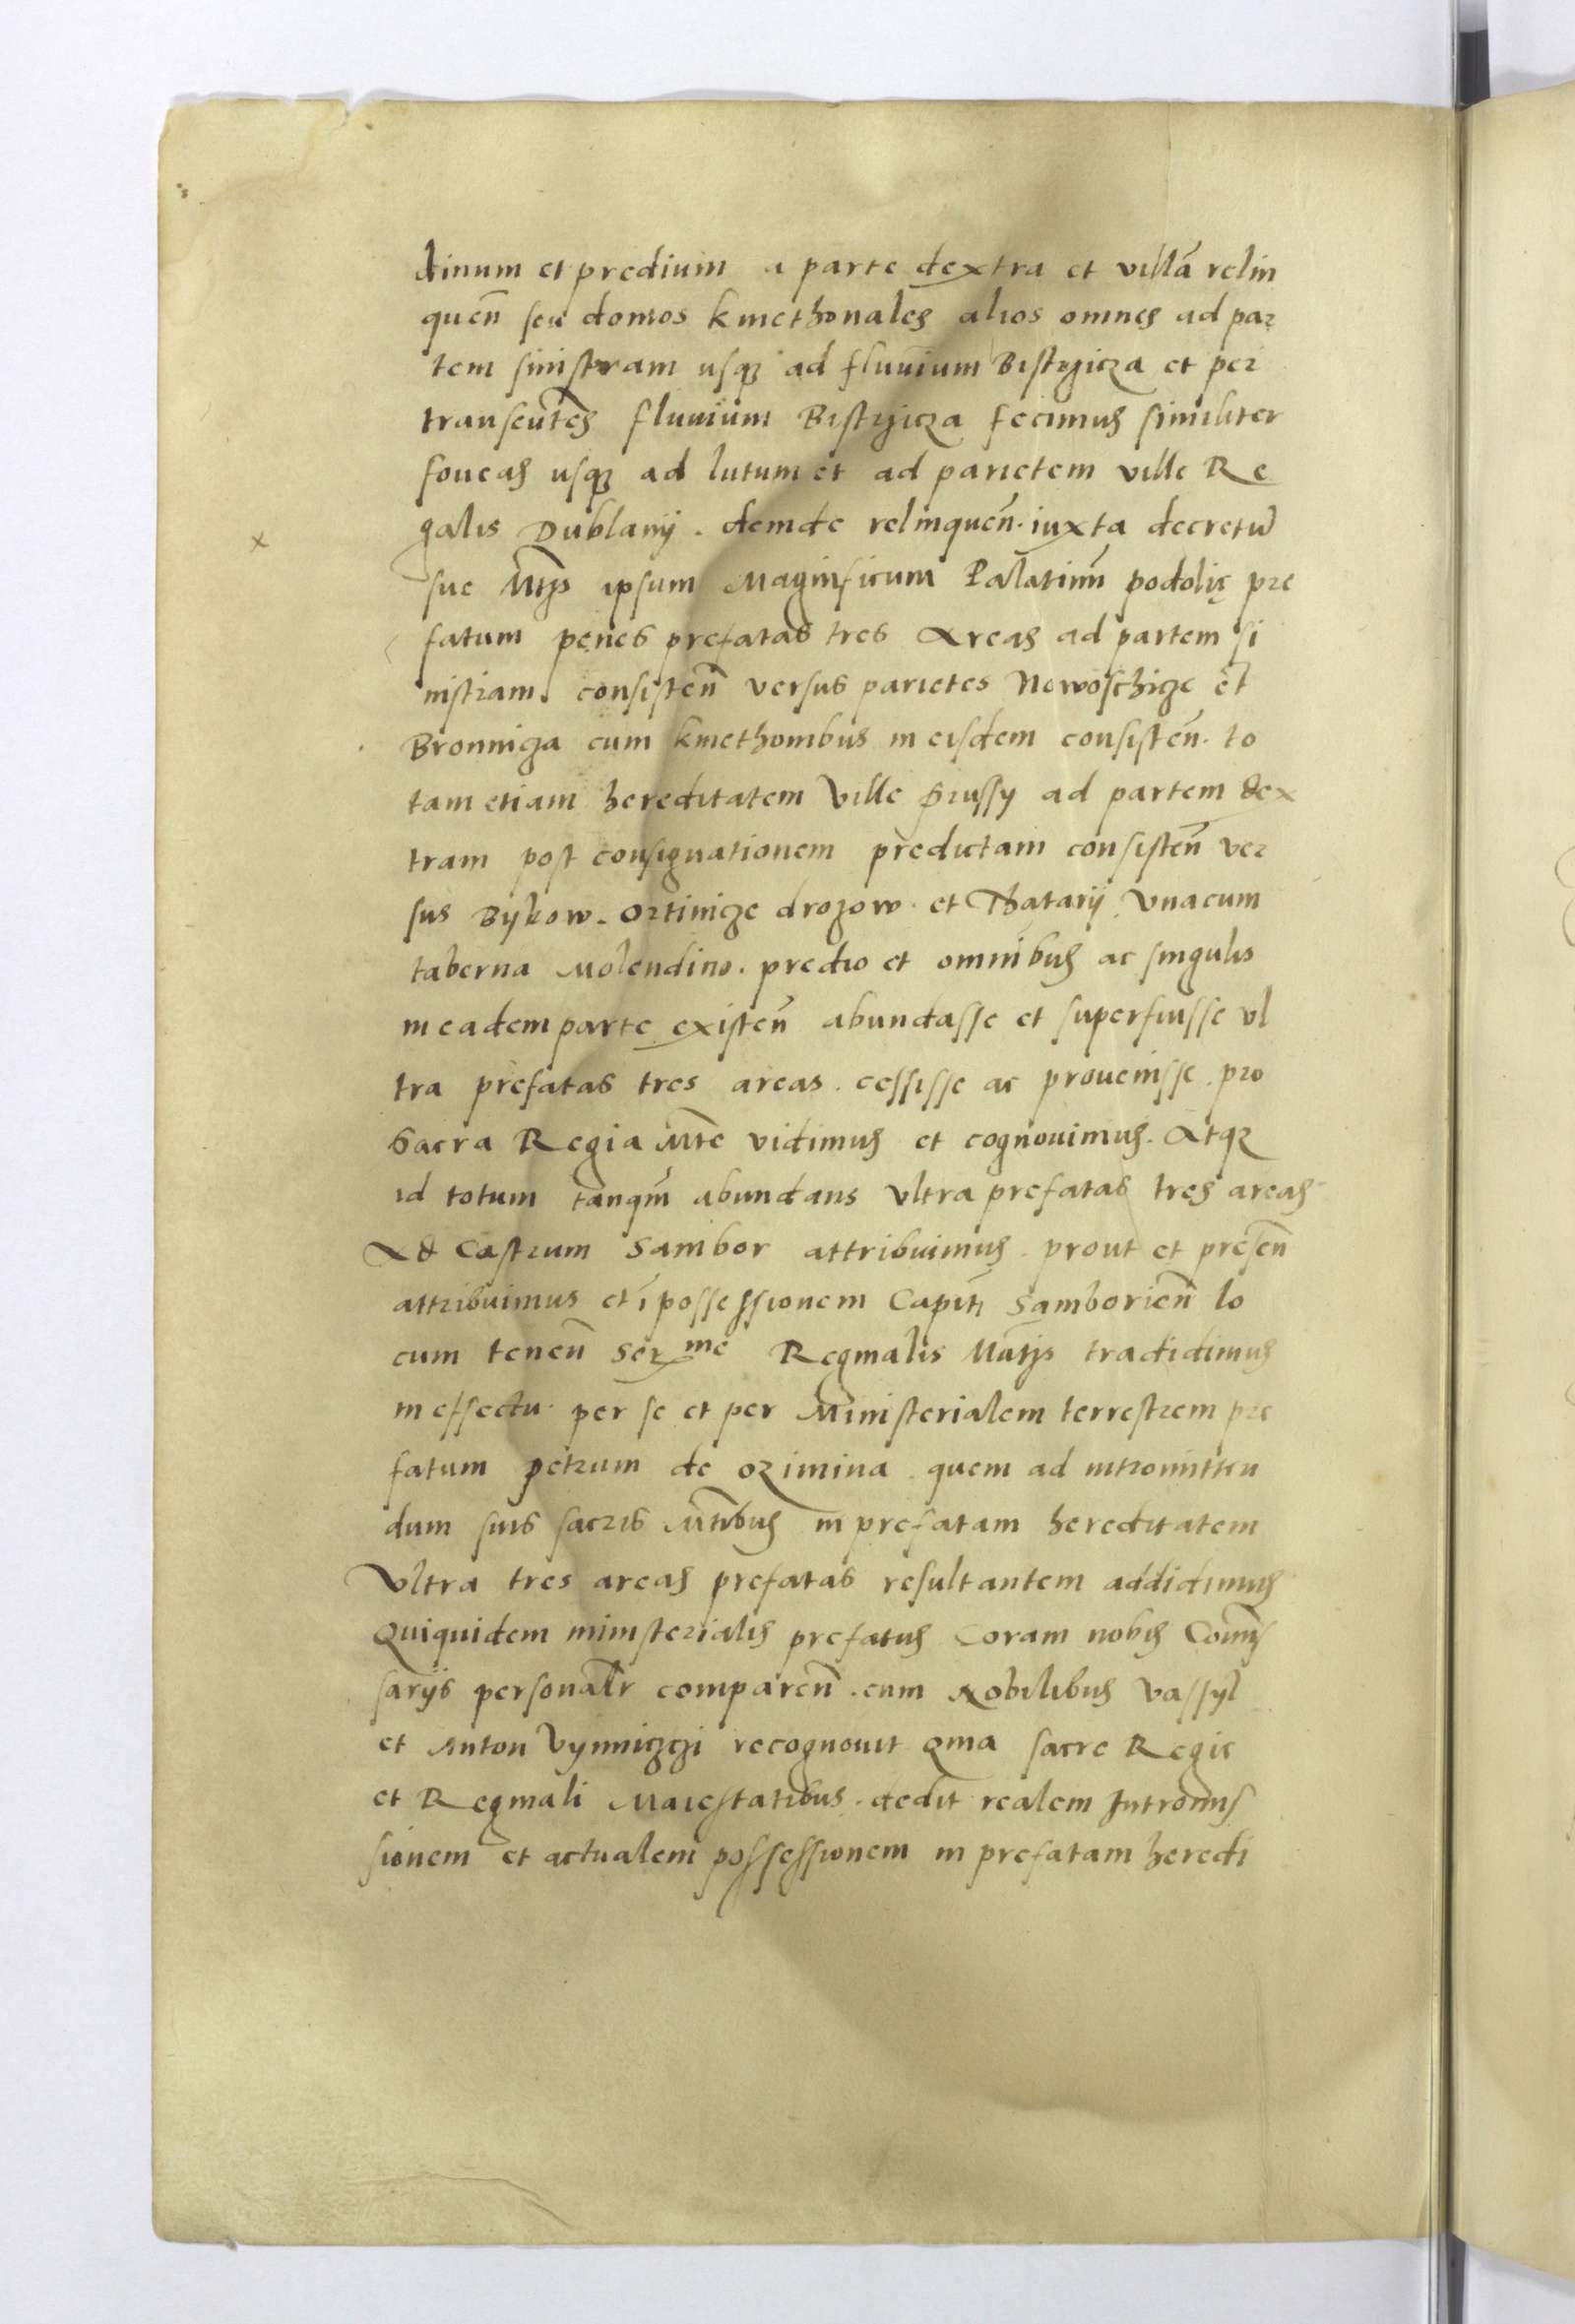 dinum et predium a parte dextra et villā relin
quen̄ seu domos kmethonales alios omnes ad par
tem sinistram usq; ad fluvium Bistrjicza et per
transeūtes fluuium Bistrijcza fecimus similiter
foueas usq; ad lutum et ad parietem ville Re
galis Dublanij. deinde relinquen̄. iuxta decretū
sue Mtjs ipsum Magnificum Palatinū podolię pre
fatum penes prefatas tres Areas ad partem si
nistram. consisten̄ versus parietes Nowoschicze et
Bronnicza cum kmethonibus in eisdem consisten̄. to
tam etiam hereditatem Ville Prussy ad partem dex
tram post consignationem predictam consisten̄ ver
sus Bykow. Ortinicze drozow. et Thatarij Vnacum
taberna Molendino. predio et omnibus ac singulis
in eadem parte existen̄ abundasse et superfuisse vl
tra prefatas tres areas. cessisse ac prouenisse. pro
Sacra Regia Mte vidimus et cognouimus. Atq;
id totum tanqm̄ abundans Vltra prefatas tres areas
Ad Castrum Sambor attribuimus. prout et presen̄
attribuimus et ī possessionem Capitī Samborien̄ lo
cum tenen̄ Serme Reginalis Mātjs tradidimus
in effectu. per se et per Ministerialem terrestrem pre
fatum petrum de ozimina. quem ad intromitten
dum suis sacris Mtībus in prefatam hereditatem
Vltra tres areas prefatas resultantem addidimus
Quiquidem ministerialis prefatus Coram nobis Comīs
sarijs personalr̄ comparen̄. cum Nobilibus Vassyl
et Anton Vynniczgi recognouit Qma sacre Regie
et Reginali Maiestatibus. dedit realem Intromis
sionem et actualem possessionem in prefatam heredi